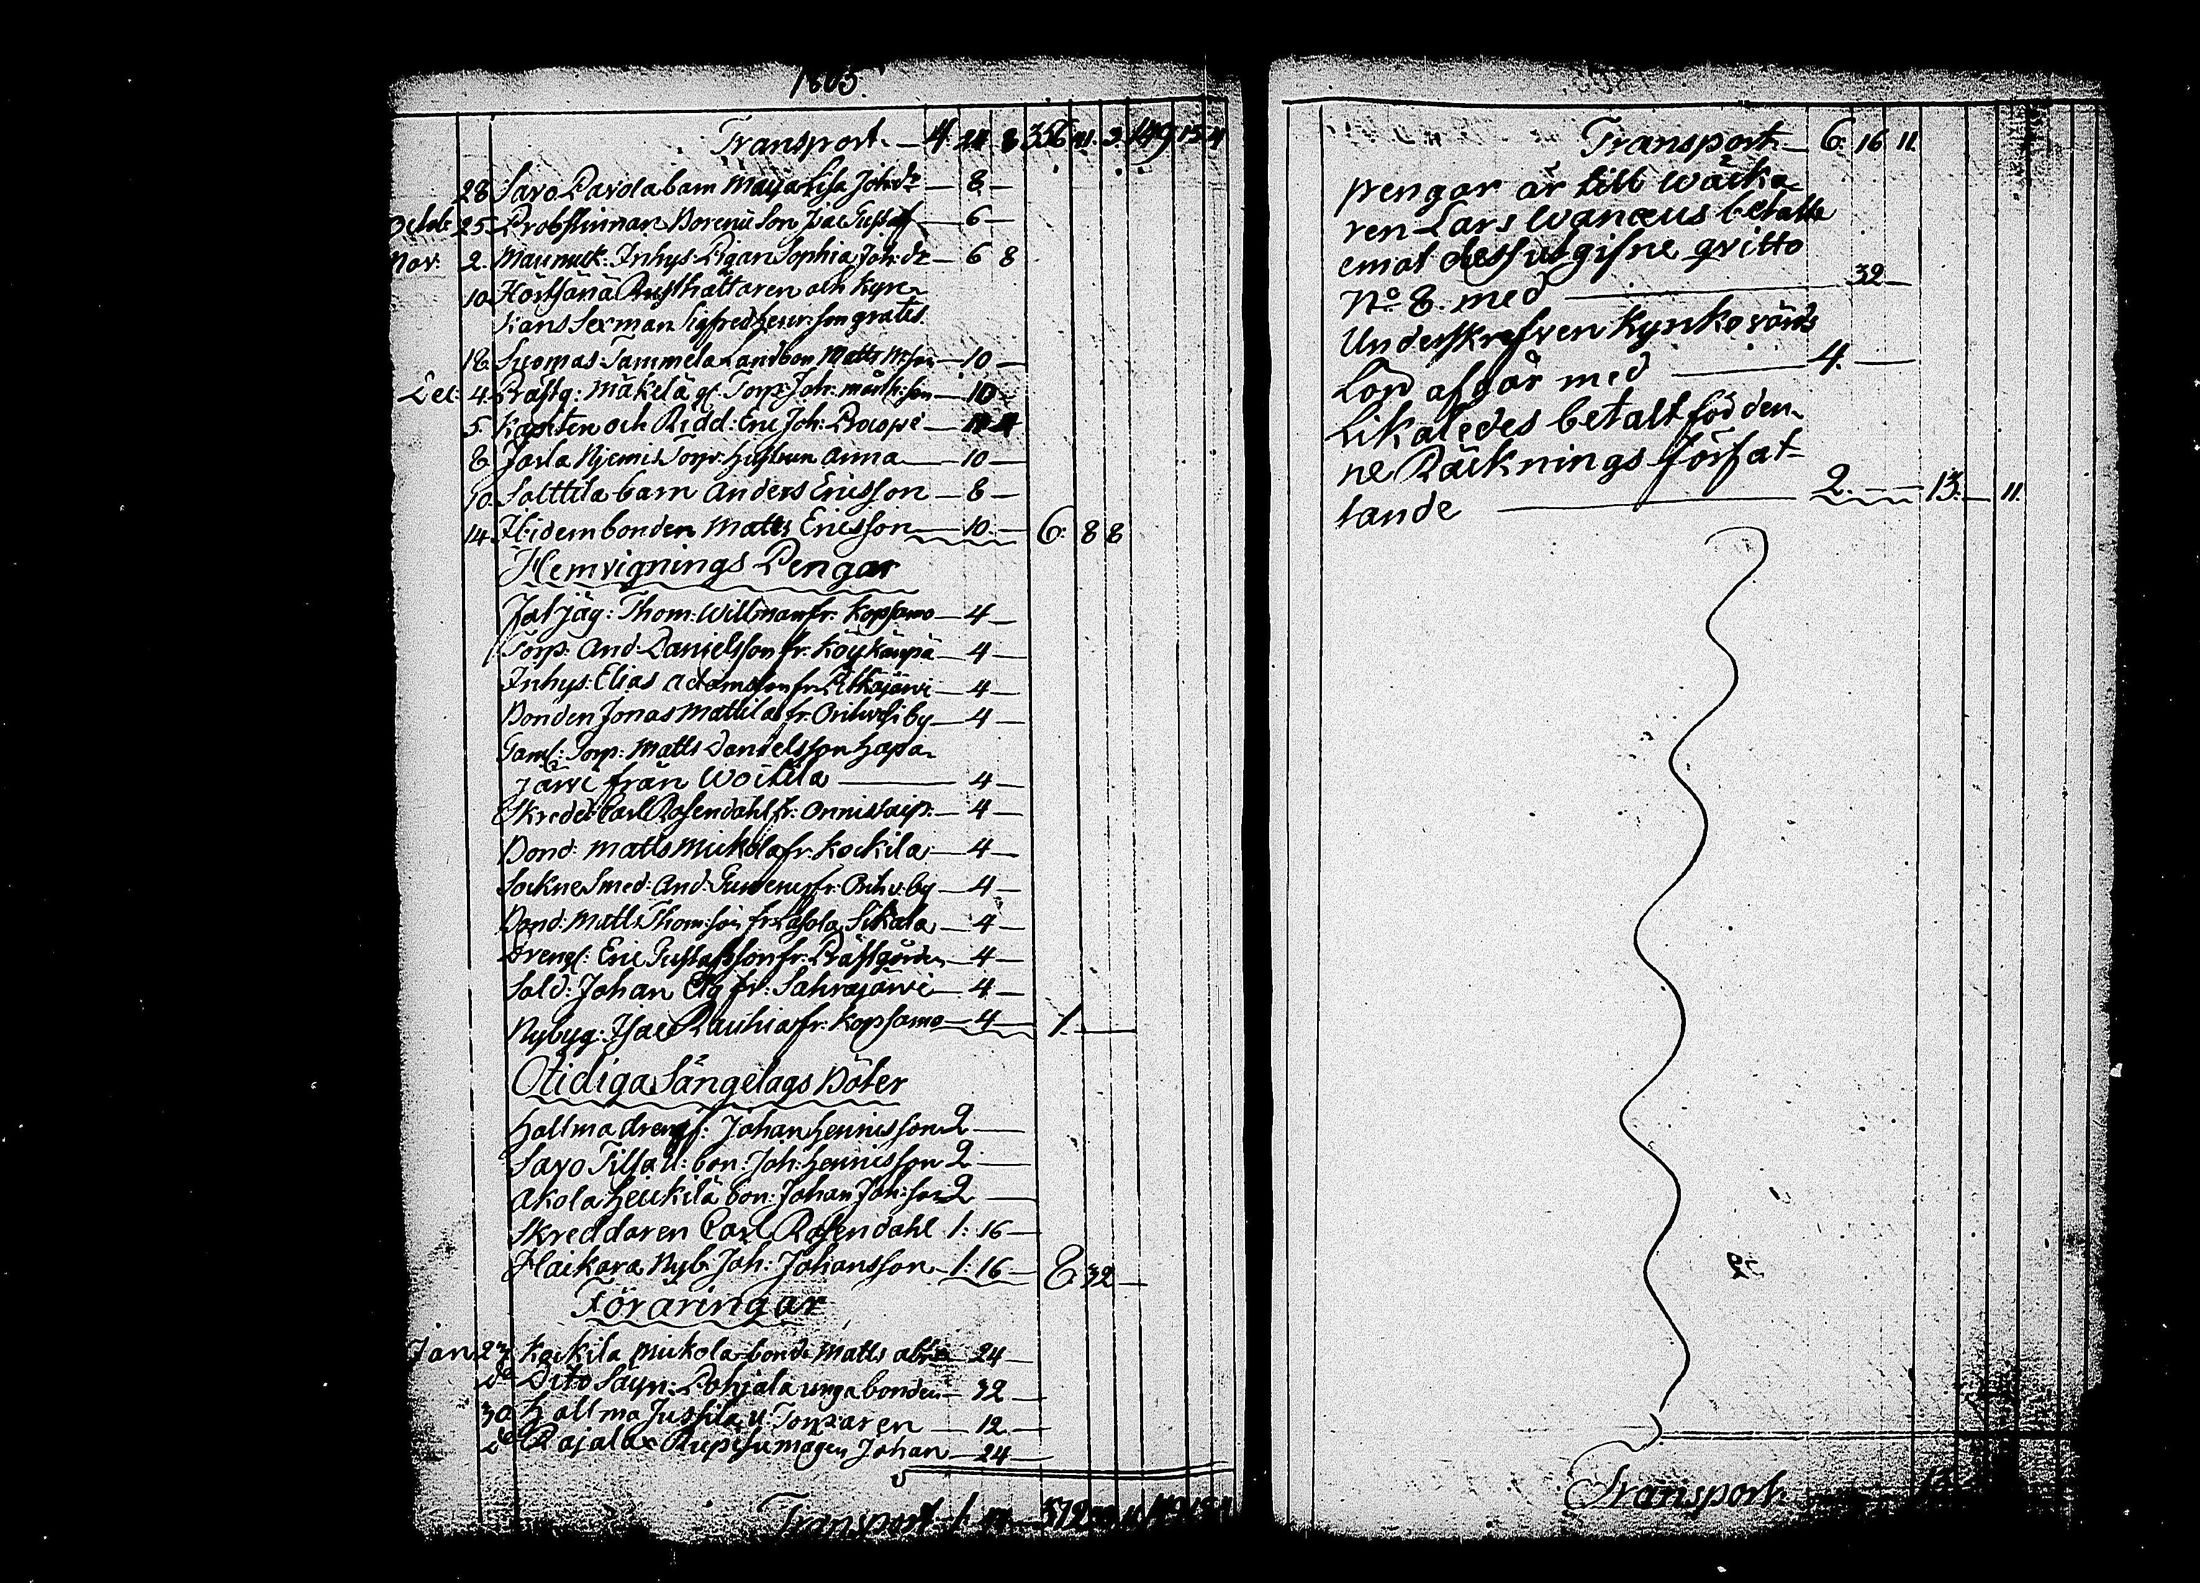 1805.
Transport. — 4. 24 8 356 41. 3. 149 15 4
28 Savo Pavola barn Maya Lisa Joh:dr — 8 —
Octob: 25 Probstinnan Borenii Son Isac Gustaf — 6 —
Nov. 2. Maunuk. Inhys. Pigan Sophia Joh:dr — 6 8
10 Rusthållaren och Kyr-
kans Sexman Sigfred gratis.
18. Suomas. Tammela Landbon Matts M:son — 10 —
Dec: 4. Prästg: Mäkelä gl. Torp. Joh. — 10 —
5 Kapiten och Ridd: Eric Joh:
8 Jarla Njemis Torp. hustrun Anna — 10 —
10. Salttila barn Anders Ericsson — 8 —
14 Hidem bonden Matts Ericsson — 10 — 6: 8 8
Hemvignings Pengar
Thom: Willman fr. Kopsamo — 4 —
Torp. And. Danielsson fr. Köykänpä — 4 —
Inhys: Elias Adamsson fr. Pitkäjärvi — 4 —
Bonden Jonas Mattila fr. Orihvesi by — 4 —
Gaml: Torp: Matts Danielsson Hapa-
järvi från Woitila — 4 —
Skredd: Carl Rosendahl fr: Onnistaip. — 4 —
Bond: Matts Mickola fr. Kockila — 4 —
Sockne Smed: And: fr: Orih: by — 4 —
Bond: Matts Thom:son fr. Sikala — 4 —
Drengl: Eric Gustafsson fr. Prästgården — 4 —
Sold: Johan Elg fr: Sahrajärvi — 4 —
Nybyg: Isac Rauhia fr: Kopsamo — 4 — 1 —
Otidiga Sängelags Böter
Hallma drengs: Johan Henricsson 2 —
Savo Tilsa u: bon: Joh: Henricsson 2 —
Akola Heickilä bon: Johan Joh:son 2 —
Skreddaren Carl Rosendahl 1: 16 —
Haikara Nyb. Joh: Johansson — 1: 16 — 8 32 —
Föraringar
Jan 23 Kockila Mickola bonde Matts — 24 —
do Dito Sayn: Pohjala unga bonden — 32 —
30 Hallma Jussila u Torparen — 12 —
do Rajalax Rupisu mågen Johan — 24 —
Transport
Transport — 6. 16 11
pengar är till Wäcka-
ren Lars Wanæus betalta
emot dess utgifne qvitto
No 8. med — 32 —
Underskrefven Kyrkovärds
Lön afgår med — 4. —
Likaledes betalt för den-
ne Räcknings förfat-
tande — 2. — 13. — 11.
Transport